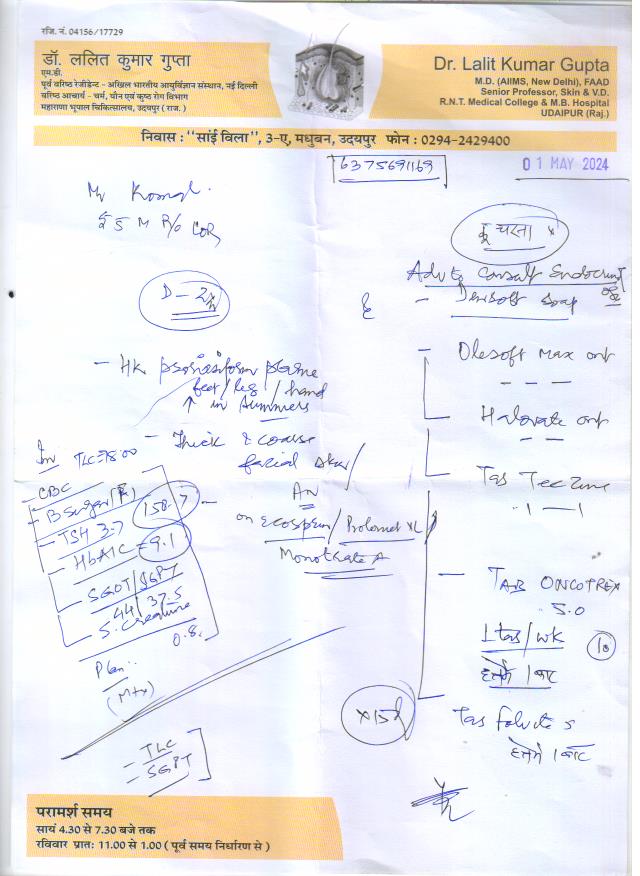 रजि. नं. 04156/17729
डॉ. ललित कुमार गुप्ता
एम.डी.
पूर्व वरिष्ठ रेजीडेन्ट - अखिल भारतीय आयुर्विज्ञान संस्थान, नई दिल्ली
वरिष्ठ आचार्य - चर्म, यौन एवं कुष्ठ रोग विभाग
महाराणा भूपाल चिकित्सालय, उदयपुर ( राज. )
Dr. Lalit Kumar Gupta
M.D. (AIIMS, New Delhi), FAAD
Senior Professor, Skin & V.D.
R.N.T. Medical College & M.B. Hospital
UDAIPUR (Raj.)
निवास : "सांई विला", 3-ए, मधुबन, उदयपुर फोन : 0294-2429400
6375691169
01 MAY 2024
M
D-2
- HK psoriasiform plaque
feet / leg / hand
↑ in summers
- Thick & coarse
facial skin/
AN
on Ecosprin/
Monotrate A
Inv TLC
- CBC
- B sugar (F) 158.7
- TSH 3.7
HbA1C = 9.1
- SGOT/SGPT
44/37.5
- S. Creatinine
0.8
Plan
(Mtx)
- TLC
- SGPT
Adv to Consult Endocrinol
- soap
- Olesoft Max ont
- - -
Halovate ont
- -
Tab Teczine
- 1 - 1
- TAB ONCOTREX
5.0
1 tab/wk
10
हफ्ते में 1 बार
Tab Folvite 5
हफ्ते में 1 बार
परामर्श समय
सायं 4.30 से 7.30 बजे तक
रविवार प्रातः 11.00 से 1.00 ( पूर्व समय निर्धारण से )